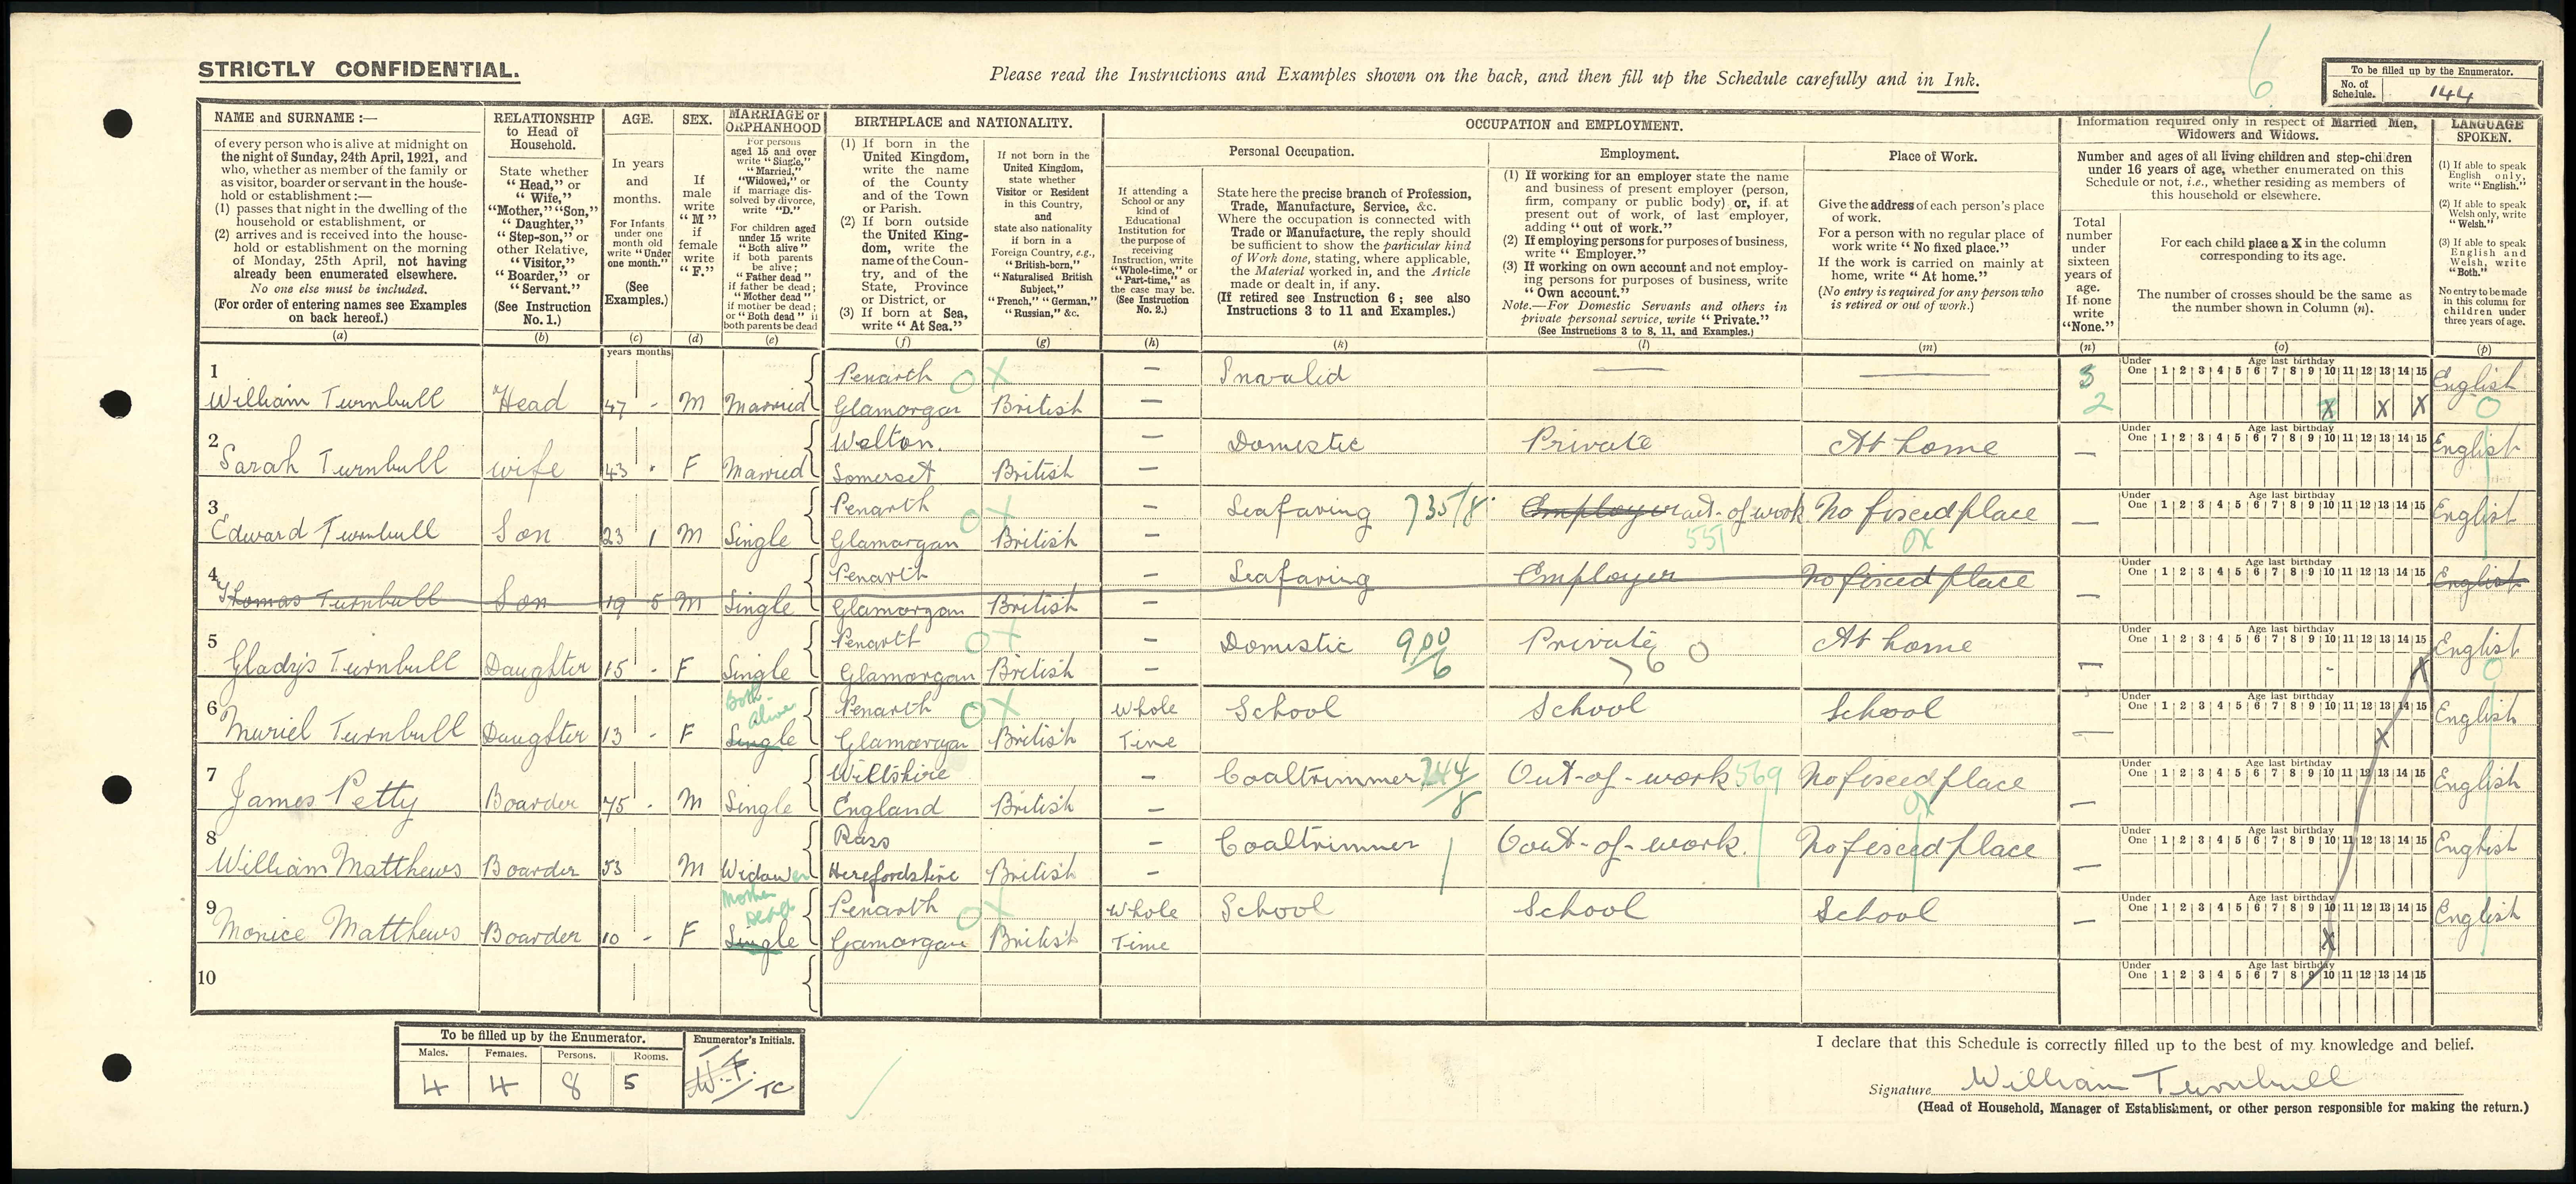 STRICTLY CONFIDENTIAL.
Please read the Instructions and Examples shown on the back, and then fill up the Schedule carefully and in Ink.
6
To be filled up by the Enumerator.
No. of Schedule. 144
NAME and SURNAME :—
of every person who is alive at midnight on
the night of Sunday, 24th April, 1921, and
who, whether as member of the family or
as visitor, boarder or servant in the house-
hold or establishment :—
(1) passes that night in the dwelling of the
household or establishment, or
(2) arrives and is received into the house-
hold or establishment on the morning
of Monday, 25th April, not having
already been enumerated elsewhere.
No one else must be included.
(For order of entering names see Examples
on back hereof.)
(a)
RELATIONSHIP
to Head of
Household.
State whether
"Head," or
"Wife,"
"Mother," "Son,"
"Daughter,"
"Step-son," or
other Relative,
"Visitor,"
"Boarder," or
"Servant."
(See Instruction
No. 1.)
(b)
AGE.
In years
and
months.
For Infants
under one
month old
write "Under
one month."
(See
Examples.)
(c)
SEX.
If
male
write
"M"
if
female
write
"F."
(d)
MARRIAGE or
ORPHANHOOD
For persons
aged 15 and over
write "Single,"
"Married,"
"Widowed," or
if marriage dis-
solved by divorce,
write "D."
For children aged
under 15 write
"Both alive"
if both parents
be alive;
"Father dead"
if father be dead;
"Mother dead"
if mother be dead;
or "Both dead" if
both parents be dead
(e)
BIRTHPLACE and NATIONALITY.
(1) If born in the
United Kingdom,
write the name
of the County
and of the Town
or Parish.
(2) If born outside
the United King-
dom, write the
name of the Coun-
try, and of the
State, Province
or District, or
(3) If born at Sea,
write "At Sea."
(f)
If not born in the
United Kingdom,
state whether
Visitor or Resident
in this Country,
and
state also nationality
if born in a
Foreign Country, e.g.,
"British-born,"
"Naturalised British
Subject,"
"French," "German,"
"Russian," &c.
(g)
OCCUPATION and EMPLOYMENT.
Personal Occupation.
If attending a
School or any
kind of
Educational
Institution for
the purpose of
receiving
Instruction, write
"Whole-time," or
"Part-time," as
the case may be.
(See Instruction
No. 2.)
(h)
State here the precise branch of Profession,
Trade, Manufacture, Service, &c.
Where the occupation is connected with
Trade or Manufacture, the reply should
be sufficient to show the particular kind
of Work done, stating, where applicable,
the Material worked in, and the Article
made or dealt in, if any.
(If retired see Instruction 6; see also
Instructions 3 to 11 and Examples.)
(k)
Employment.
(1) If working for an employer state the name
and business of present employer (person,
firm, company or public body) or, if at
present out of work, of last employer,
adding "out of work."
(2) If employing persons for purposes of business,
write "Employer."
(3) If working on own account and not employ-
ing persons for purposes of business, write
"Own account."
Note.—For Domestic Servants and others in
private personal service, write "Private."
(See Instructions 3 to 8, 11, and Examples.)
(l)
Place of Work.
Give the address of each person's place
of work.
For a person with no regular place of
work write "No fixed place."
If the work is carried on mainly at
home, write "At home."
(No entry is required for any person who
is retired or out of work.)
(m)
Information required only in respect of Married Men,
Widowers and Widows.
Number and ages of all living children and step-children
under 16 years of age, whether enumerated on this
Schedule or not, i.e., whether residing as members of
this household or elsewhere.
Total
number
under
sixteen
years of
age.
If none
write
"None."
(n)
For each child place a X in the column
corresponding to its age.
The number of crosses should be the same as
the number shown in Column (n).
(o)
LANGUAGE
SPOKEN.
(1) If able to speak
English only,
write "English."
(2) If able to speak
Welsh only, write
"Welsh."
(3) If able to speak
English and
Welsh, write
"Both."
No entry to be made
in this column for
children under
three years of age.
(p)
years months
Under One 1 2 3 4 5 6 7 8 9 10 11 12 13 14 15
Age last birthday
1 William Turnbull Head 47 - M Married Penarth Glamorgan British — Invalid — — 3 2 X X X English
2 Sarah Turnbull wife 43 - F Married Walton. Somerset British — Domestic Private At home — English
3 Edward Turnbull Son 23 1 M Single Penarth Glamorgan British — Seafaring 735/8 Employer out-of work 551 No fixed place — English
4 Thomas Turnbull Son 19 5 M Single Penarth Glamorgan British — Seafaring Employer No fixed place — English
5 Gladys Turnbull Daughter 15 - F Single Penarth Glamorgan British — Domestic 900/6 Private At home — X English
6 Muriel Turnbull Daughter 13 - F Both Alive Single Penarth Glamorgan British Whole Time School School School — X English
7 James Petty Boarder 75 - M Single Wiltshire England British — Coaltrimmer 744/8 Out-of-work 569 No fixed place — English
8 William Matthews Boarder 53 M Widower Ross Herefordshire British — Coaltrimmer Out-of-work. No fixed place — English
9 Monice Matthews Boarder 10 - F Mother Dead Single Penarth Gamorgan British Whole Time School School School — X English
10
To be filled up by the Enumerator.
Males. Females. Persons. Rooms.
4 4 8 5
Enumerator's Initials.
TC
I declare that this Schedule is correctly filled up to the best of my knowledge and belief.
Signature William Turnbull
(Head of Household, Manager of Establishment, or other person responsible for making the return.)